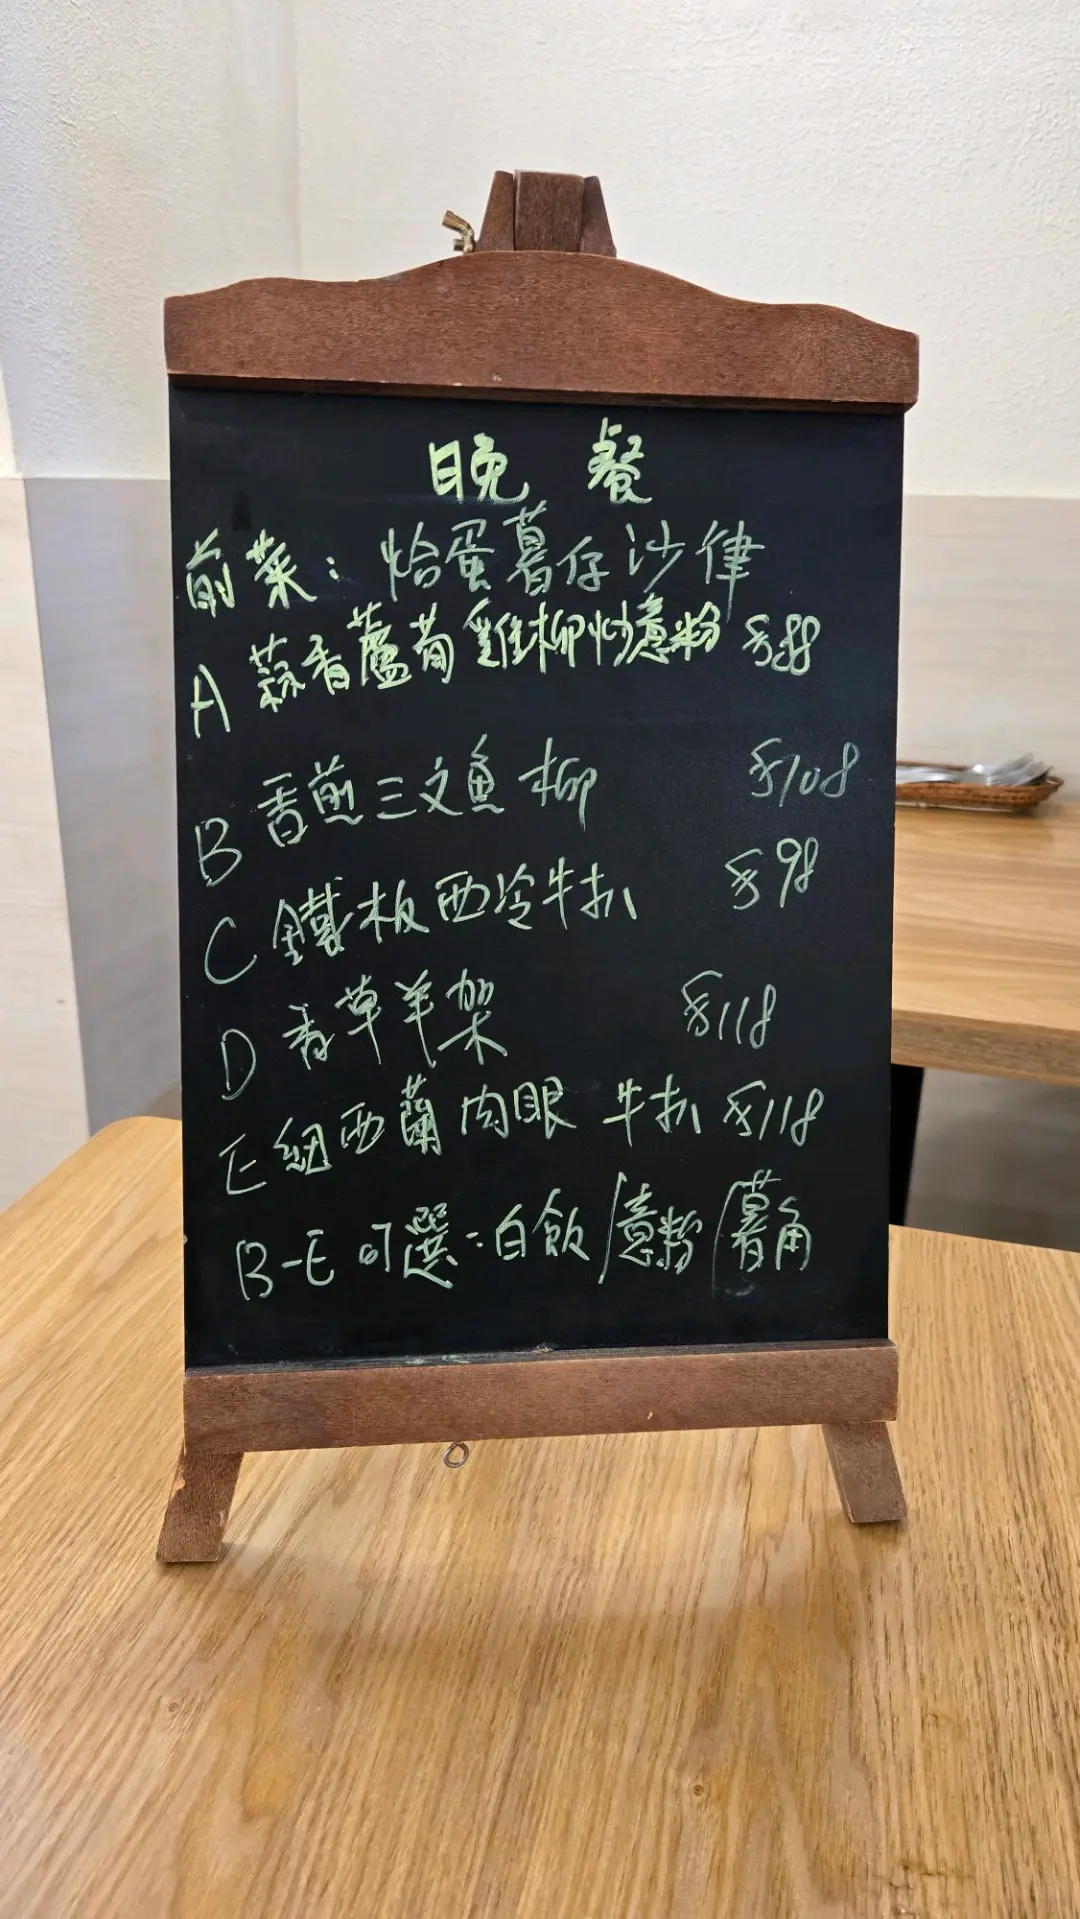 晚 餐
前菜：烚蛋薯仔沙律
A 蒜香蘆荀雞柳炒意粉 $88
B 香煎三文魚柳 $108
C 鐵板西冷牛扒 $98
D 香草羊架 $118
E 紐西蘭肉眼 牛扒 $118
B-E可選：白飯/意粉/薯角